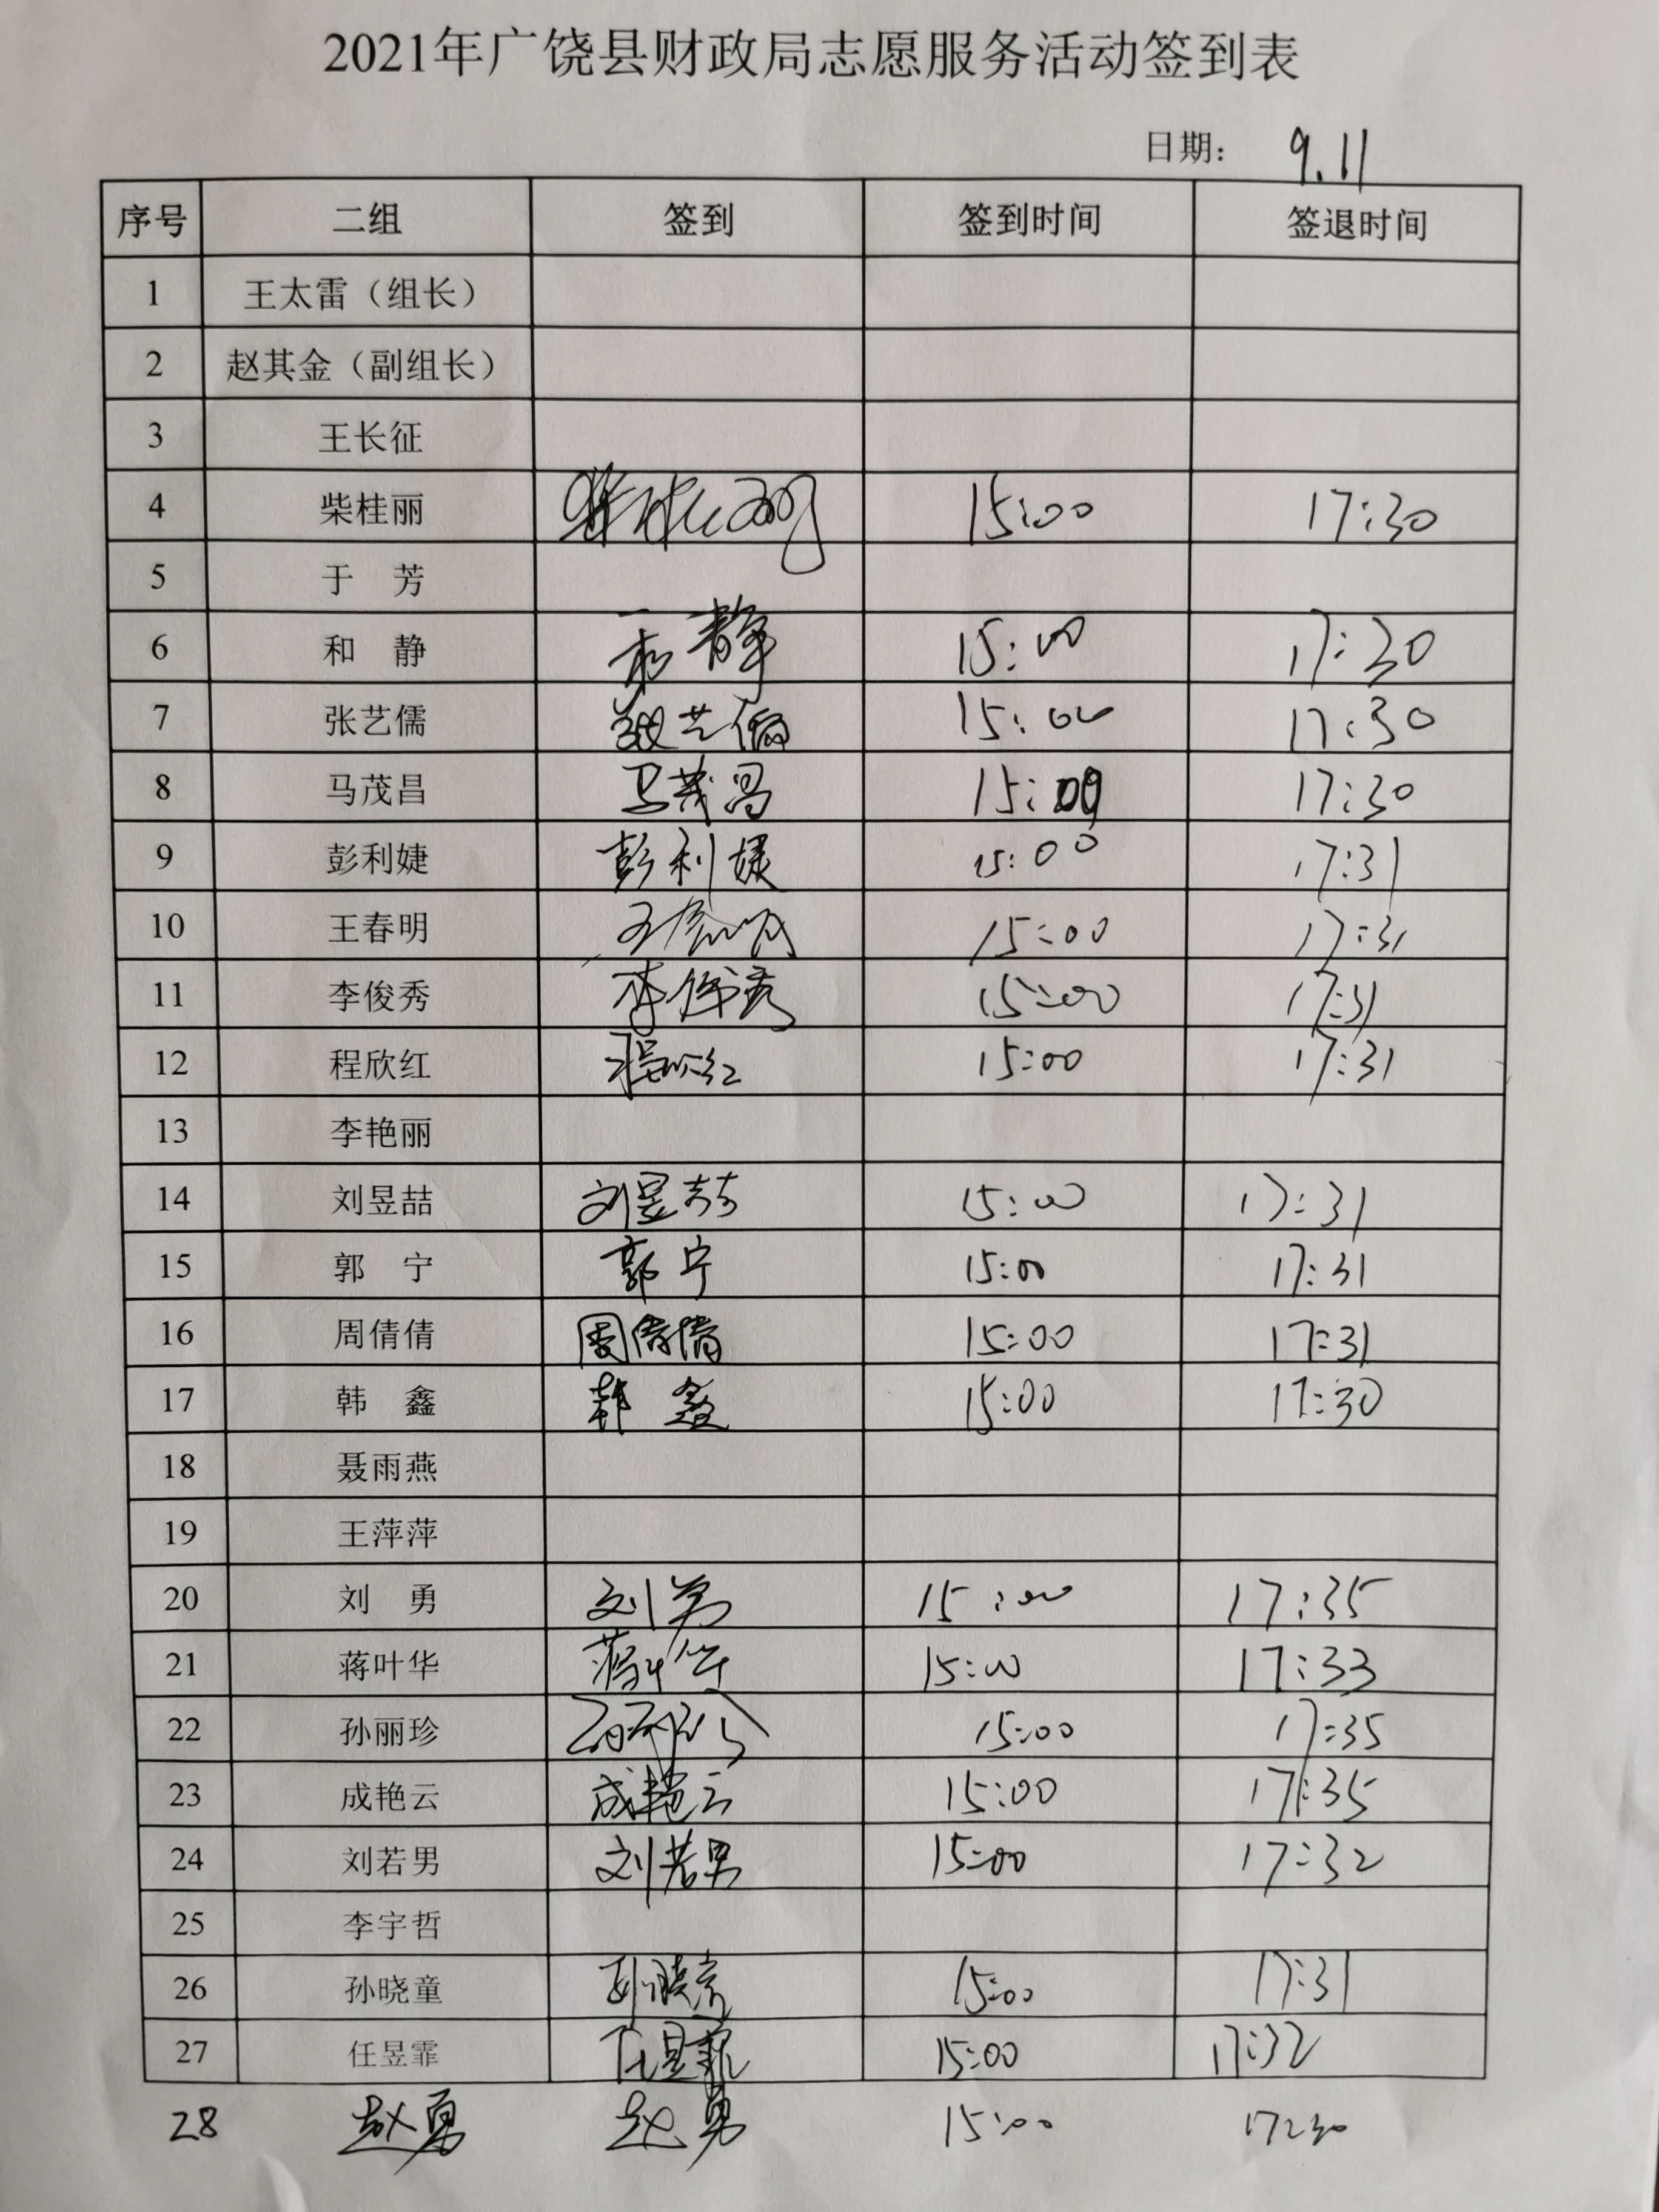 2021年广饶县财政局志愿服务活动签到表
日期： 9.11
序号 二组 签到 签到时间 签退时间
1 王太雷（组长）
2 赵其金（副组长）
3 王长征
4 柴桂丽 柴桂丽 15:00 17:30
5 于 芳
6 和 静 和静 15:00 17:30
7 张艺儒 张艺儒 15:00 17:30
8 马茂昌 马茂昌 15:00 17:30
9 彭利婕 彭利婕 15:00 17:31
10 王春明 王春明 15:00 17:31
11 李俊秀 李俊秀 15:00 17:31
12 程欣红 程欣红 15:00 17:31
13 李艳丽
14 刘昱喆 刘昱喆 15:00 17:31
15 郭 宁 郭宁 15:00 17:31
16 周倩倩 周倩倩 15:00 17:31
17 韩 鑫 韩鑫 15:00 17:30
18 聂雨燕
19 王萍萍
20 刘 勇 刘勇 15:00 17:35
21 蒋叶华 蒋叶华 15:00 17:33
22 孙丽珍 孙丽珍 15:00 17:35
23 成艳云 成艳云 15:00 17:35
24 刘若男 刘若男 15:00 17:32
25 李宇哲
26 孙晓童 孙晓童 15:00 17:31
27 任昱霏 任昱霏 15:00 17:32
28 赵勇 赵勇 15:00 17:30